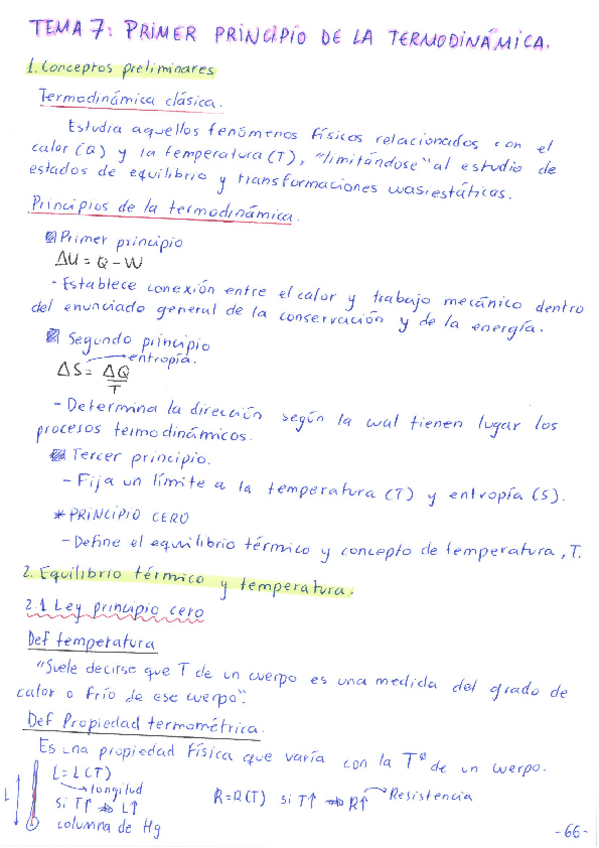 TEMA 7: PRIMER PRINCIPIO DE LA TERMODINÁMICA.
1. Conceptos preliminares
Termodinámica clásica.
Estudia aquellos fenómenos físicos relacionados con el
calor (Q) y la temperatura (T), "limitándose" al estudio de
estados de equilibrio y transformaciones cuasiestáticas.
Principios de la termodinámica.
Primer principio
ΔU = Q - W
- Establece conexión entre el calor y trabajo mecánico dentro
del enunciado general de la conservación y de la energía.
Segundo principio
entropía.
ΔS = ΔQ
T
- Determina la dirección según la cual tienen lugar los
procesos termodinámicos.
Tercer principio.
- Fija un límite a la temperatura (T) y entropía (S).
* PRINCIPIO CERO
- Define el equilibrio térmico y concepto de temperatura, T.
2. Equilibrio térmico y temperatura.
2.1 Ley principio cero
Def temperatura
"Suele decirse que T de un cuerpo es una medida del grado de
calor o frío de ese cuerpo".
Def Propiedad termométrica.
Es una propiedad física que varía con la Tª de un cuerpo.
L = L(T)
longitud
L
si T↑ ⇒ L↑
columna de Hg
R = R(T) si T↑ ⇒ R↑ → Resistencia
- 66 -